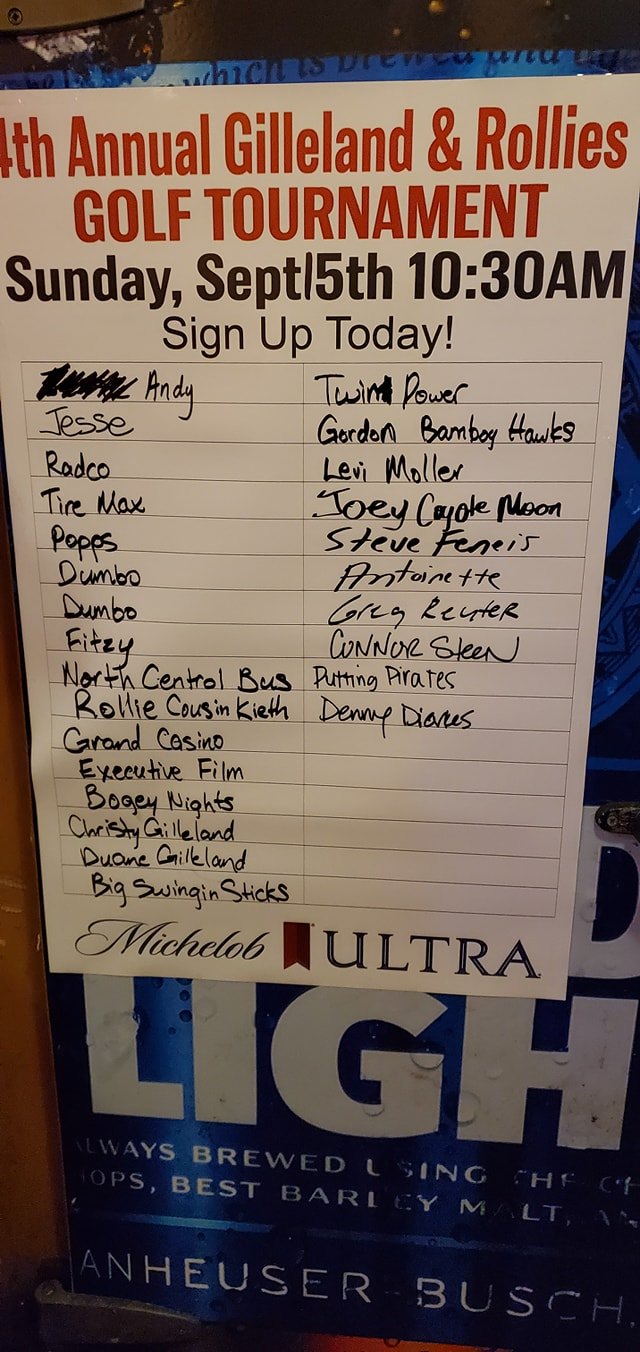 which is brewed and
4th Annual Gilleland & Rollies
GOLF TOURNAMENT
Sunday, Sept 15th 10:30AM
Sign Up Today!
Andy
Jesse
Radco
Tire Max
Popps
Dumbo
Dumbo
Fitzy
North Central Bus
Rollie Cousin Kieth
Grand Casino
Executive Film
Bogey Nights
Christy Gilleland
Duane Gilleland
Big Swingin Sticks
Twin Power
Gordon Bamboo Hawks
Levi Moller
Joey Coyote Moon
Steve Feneis
Antoinette
Greg Reuter
CONNOR Steen
Putting Pirates
Denny
Michelob ULTRA
D
LIGH
ALWAYS BREWED USING THE CH
HOPS, BEST BARLEY MALT, AN
ANHEUSER-BUSCH.